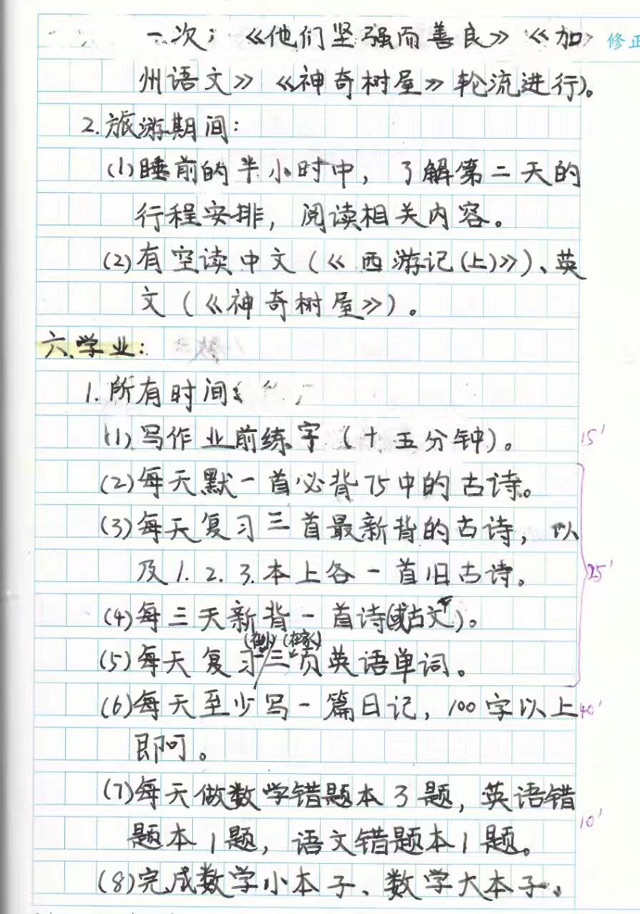 一次；《他们坚强而善良》《加
修正
州语文》《神奇树屋》轮流进行)。
2.旅游期间：
(1)睡前的半小时中，了解第二天的
行程安排，阅读相关内容。
(2)有空读中文(《西游记(上)》)、英
文(《神奇树屋》)。
六.学业：
1.所有时间：
(1)写作业前练字(十五分钟)。
15'
(2)每天默一首必背75中的古诗。
(3)每天复习三首最新背的古诗，以
及1.2.3.本上各一首旧古诗。
25'
(4)每三天新背一首诗(或古文)。
(在家)
(5)每天复习三页英语单词。
(6)每天至少写一篇日记，100字以上
40'
即可。
(7)每天做数学错题本3题，英语错
题本1题，语文错题本1题。
10'
(8)完成数学小本子、数学大本子、